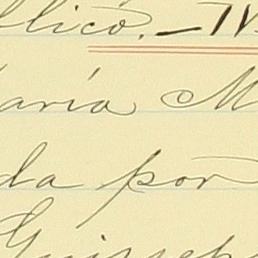 llico. — IV.
aría M
da por
Guisep